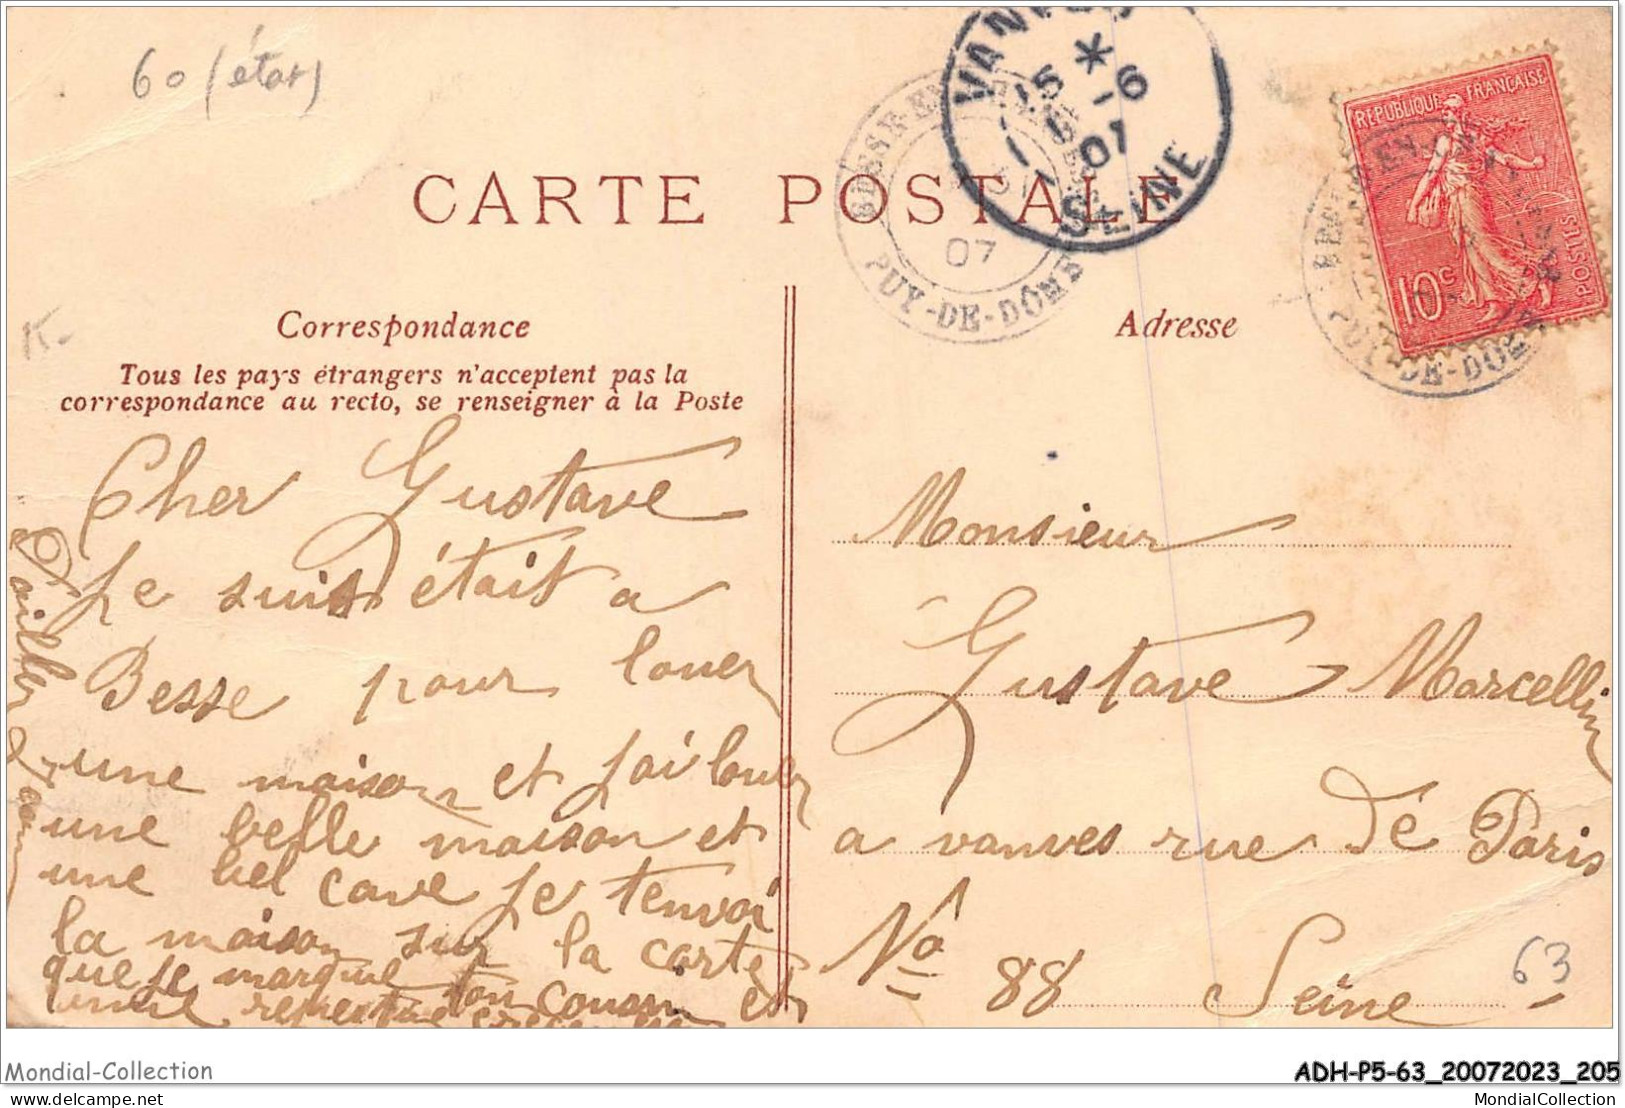 60 (état)
CARTE POSTALE
VANVES
15 *
1 -6
07
SEINE
BESSE-EN
07
PUY-DE-DÔME
RÉPUBLIQUE FRANÇAISE
POSTES
10c
PUY-DE-DÔME
Correspondance
Tous les pays étrangers n'acceptent pas la
correspondance au recto, se renseigner à la Poste
Cher Gustave
Je suis était a
Besse pour louer
une maison et jai louer
une belle maison et
une bel cave je tenvoi
la maison sur la carte
que je marque
ton cousin
Adresse
Monsieur
Gustave Marcellin
a vanves rue de Paris
No 88 Seine
63
Mondial-Collection
ADH-P5-63_20072023_205
delcampe.net
MondialCollection